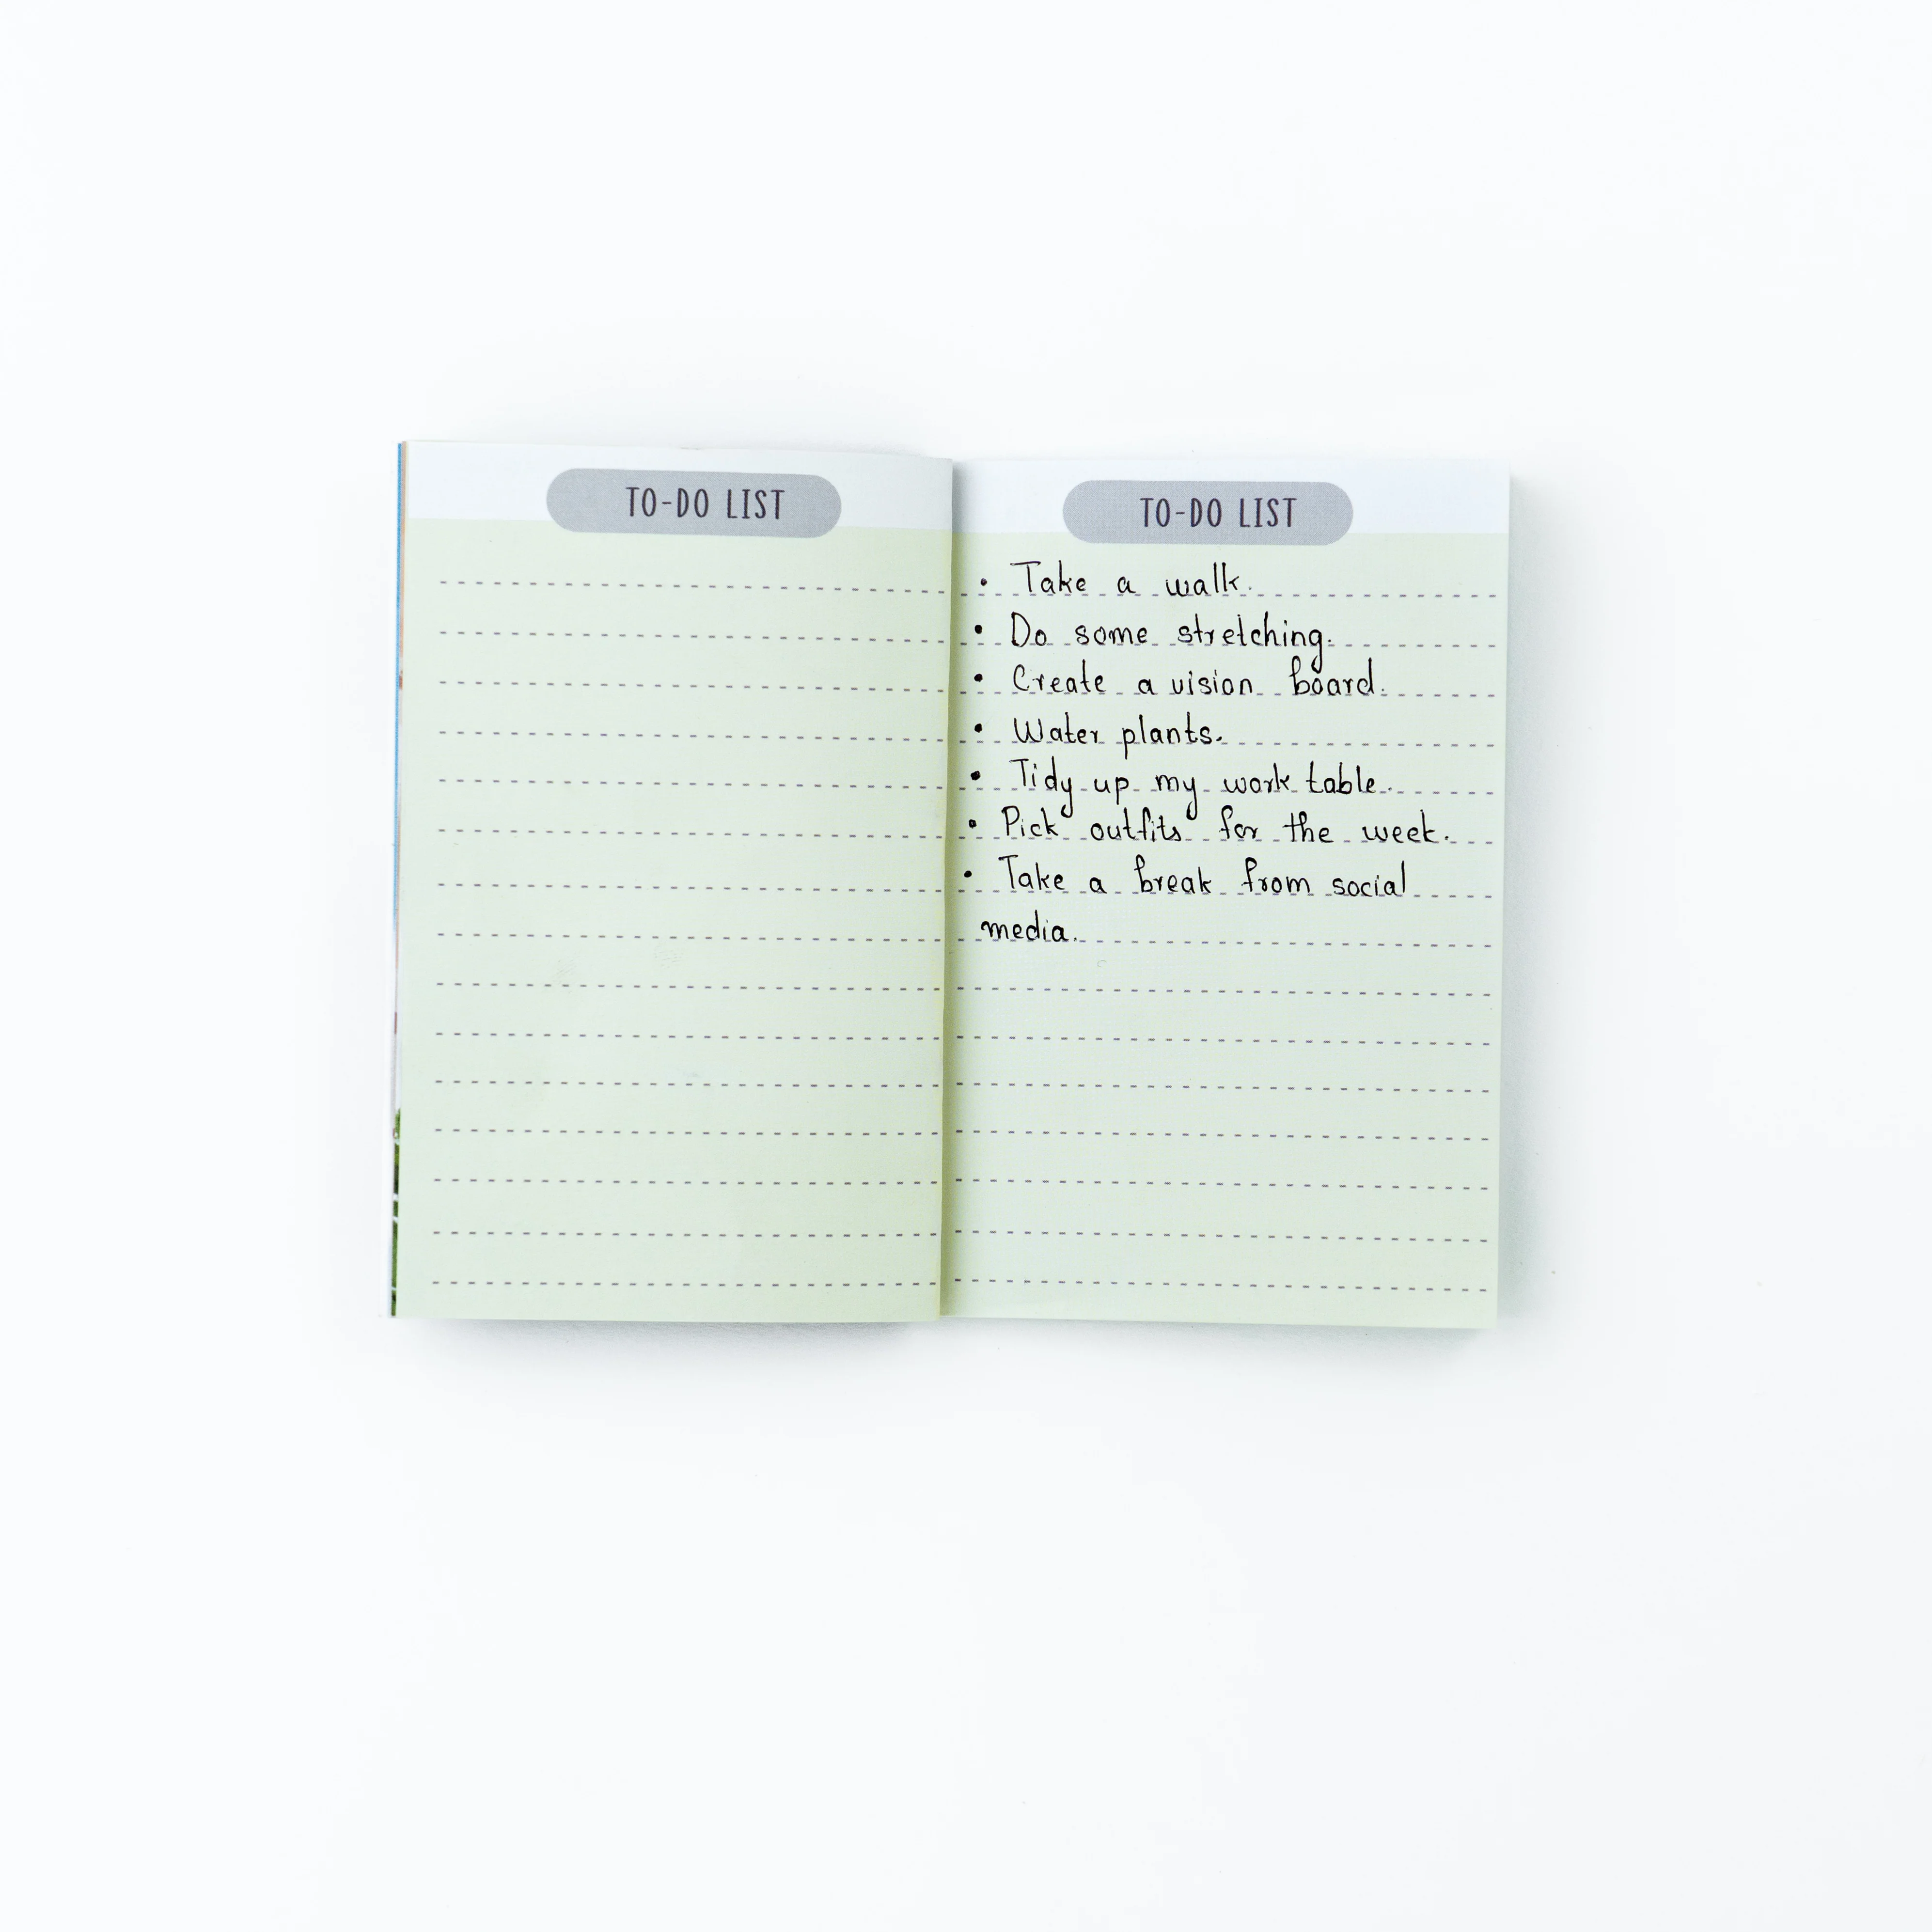 TO-DO LIST
TO-DO LIST
• Take a walk.
• Do some stretching.
• Create a vision board.
• Water plants.
• Tidy up my work table.
• Pick outfits for the week.
• Take a break from social
media.